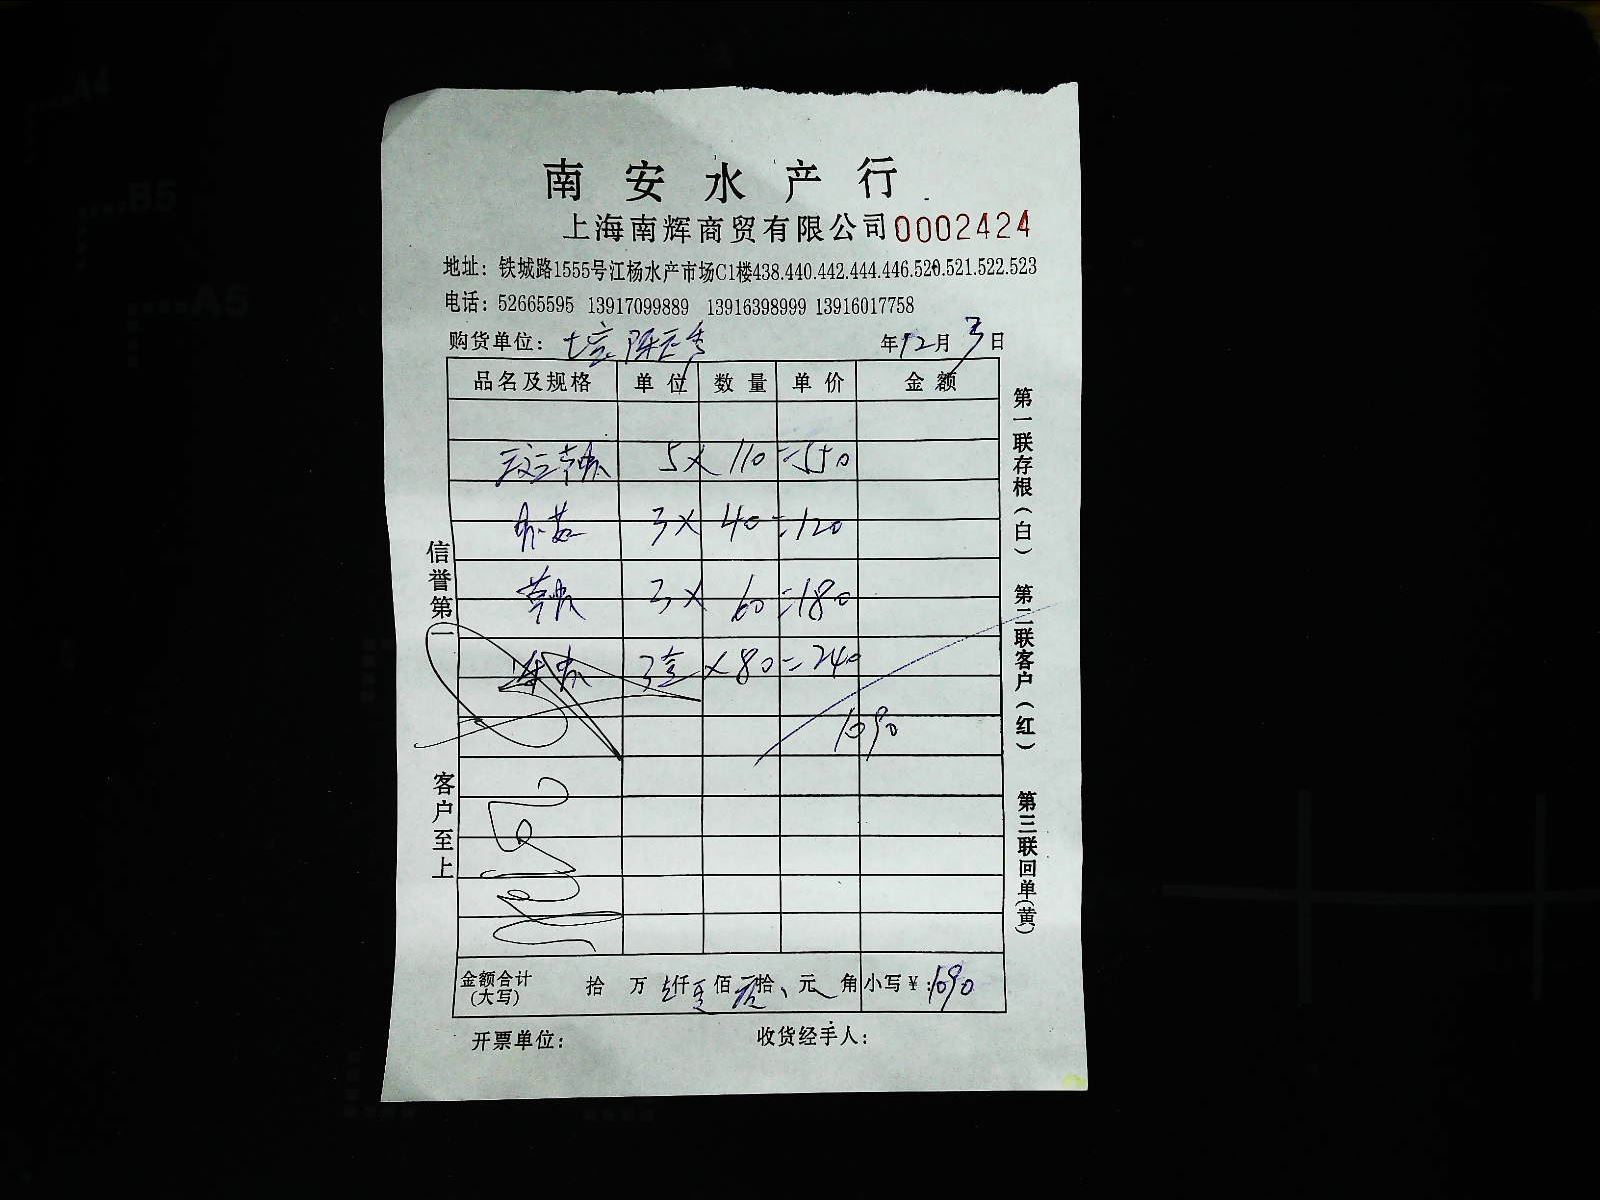 南安水产行
上海南辉商贸有限公司 0002424
地址：铁城路1555号江杨水产市场C1楼438.440.442.444.446.520.521.522.523
电话：52665595 13917099889 13916398999 13916017758
购货单位： 年12月3日
品名及规格 单位 数量 单价 金额
5×110=550
3×40=120
3×60=180
3盒×80=240
1090
金额合计(大写) 拾 万 仟 佰 拾 元 角 小写¥：1090
开票单位： 收货经手人：
信誉第一 客户至上
第一联存根（白） 第二联客户（红） 第三联回单（黄）
A4
B5
A5